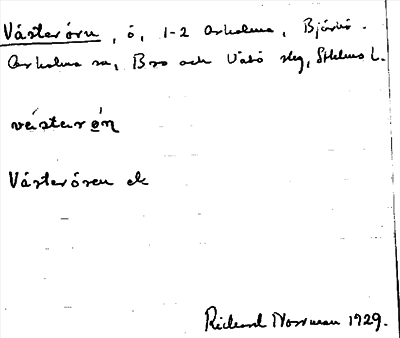 Västerön, ö, 1-2 Arholma, Björkö-
Arholma sn, Bro och Vätö slg, Sthlms L.
västerøn
Västerören ek
Richard Norrman 1929.